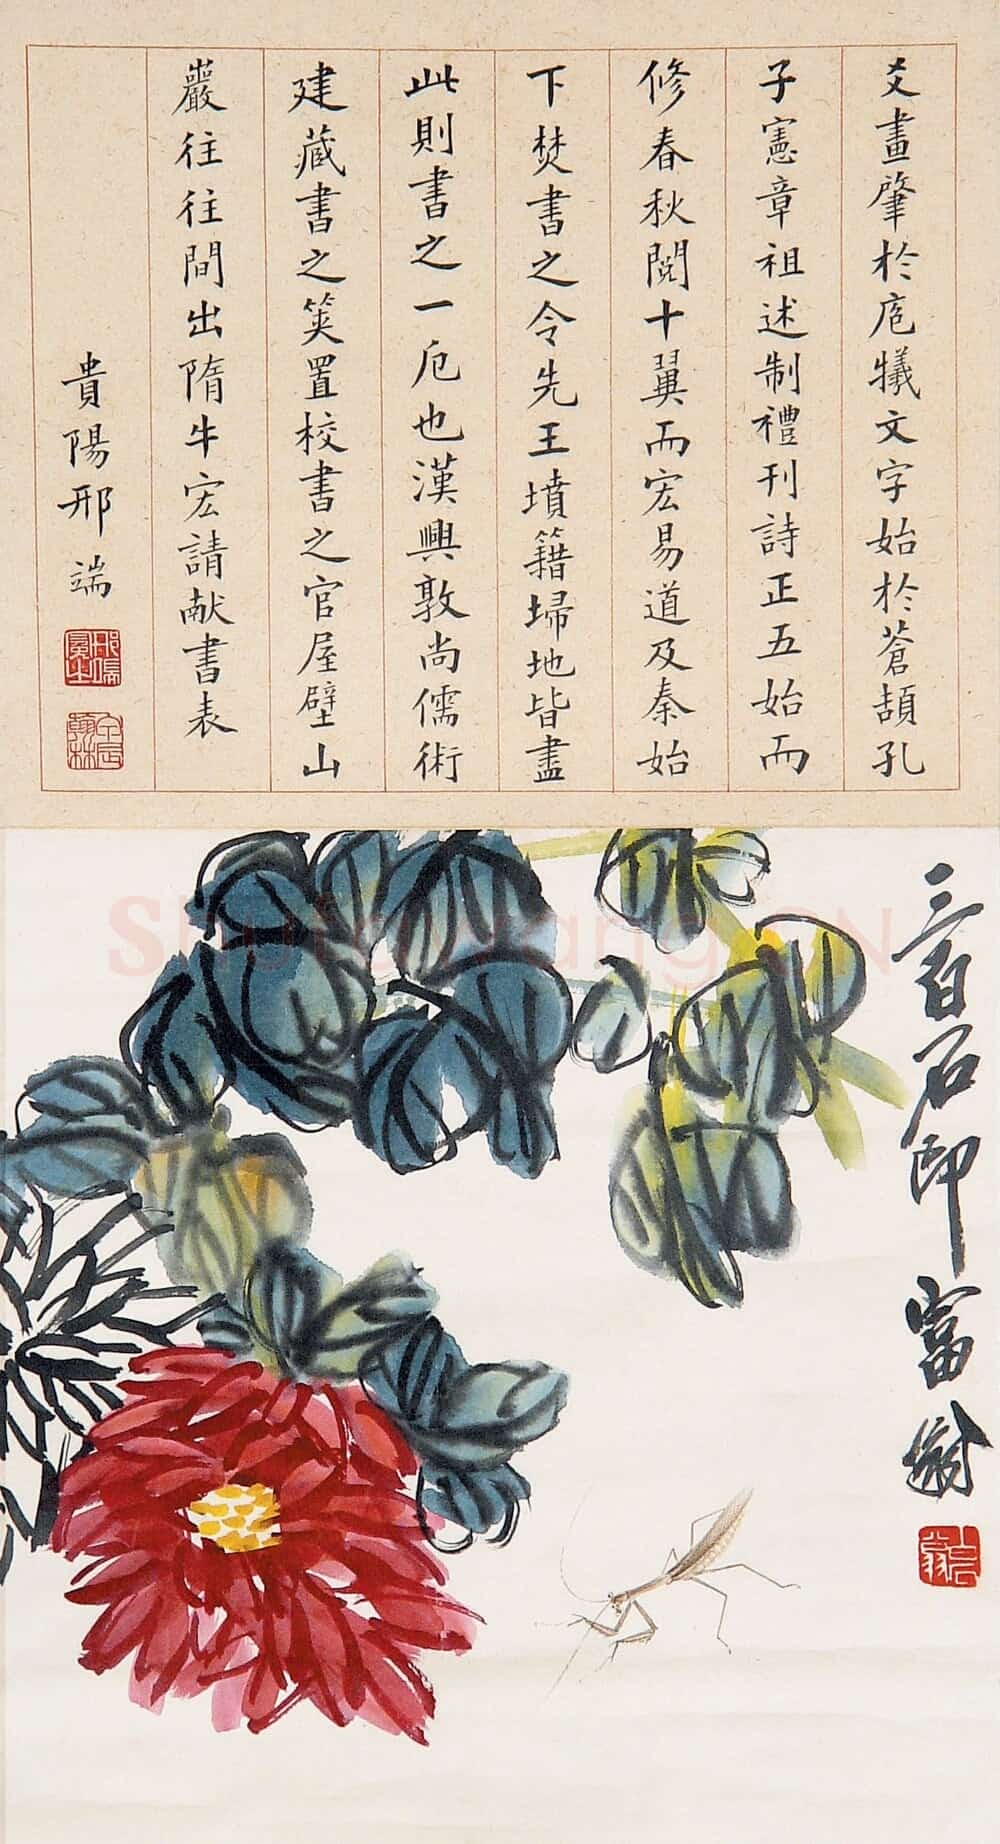 爻畫肇於庖犧文字始於蒼頡孔
子憲章祖述制禮刊詩正五始而
修春秋闡十翼而宏易道及秦始
下焚書之令先王墳籍埽地皆盡
此則書之一厄也漢興敦尚儒術
建藏書之筴置校書之官屋壁山
巖往往間出隋牛宏請献書表
貴陽邢端
邢端
翰林
三百石印富翁
白石翁